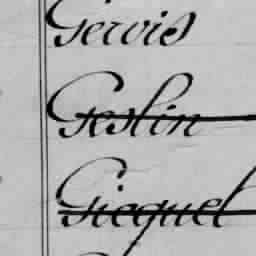 Gervis
Geslin
Gicquel